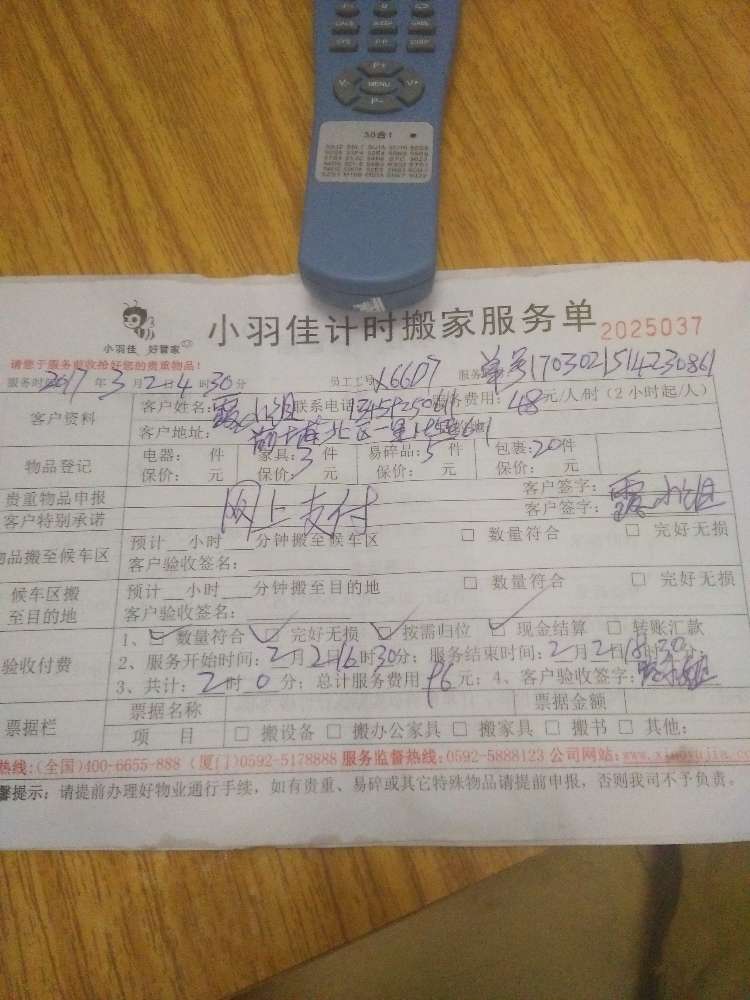 P+
V-
MENU
V+
P-
30合1
小羽佳 好管家
小羽佳计时搬家服务单 2025037
请您于服务前收拾好您的贵重物品！
服务时间 2017年3月2日4时30分 员工工号 X6607 单号1703021514230861
客户资料
客户姓名: 小姐 联系电话 服务费用: 48元/人/时 (2小时起/人)
客户地址:
物品登记
电器: 件 家具: 3件 易碎品: 5件 包裹: 20件
保价: 元 保价: 元 保价: 元 保价: 元
贵重物品申报 客户签字: 小姐
客户特别承诺 客户签字:
网上支付
物品搬至候车区
预计__小时__分钟搬至候车区 □ 数量符合 □ 完好无损
客户验收签名:
候车区搬至目的地
预计__小时__分钟搬至目的地 □ 数量符合 □ 完好无损
客户验收签名:
验收付费
1、☑数量符合 ☑完好无损 ☑按需归位 ☑现金结算 □ 转账汇款
2、服务开始时间: 2月2日16时30分; 服务结束时间: 2月2日18时30分;
3、共计: 2时0分; 总计服务费用 96元; 4、客户验收签字:
票据栏
票据名称 票据金额
项 目 □ 搬设备 □ 搬办公家具 □ 搬家具 □ 搬书 □ 其他:
热线:(全国)400-6655-888 (厦门)0592-5178888 服务监督热线:0592-5888123 公司网站:www.xiaoyujia.com
馨提示: 请提前办理好物业通行手续，如有贵重、易碎或其它特殊物品请提前申报，否则我司不予负责。